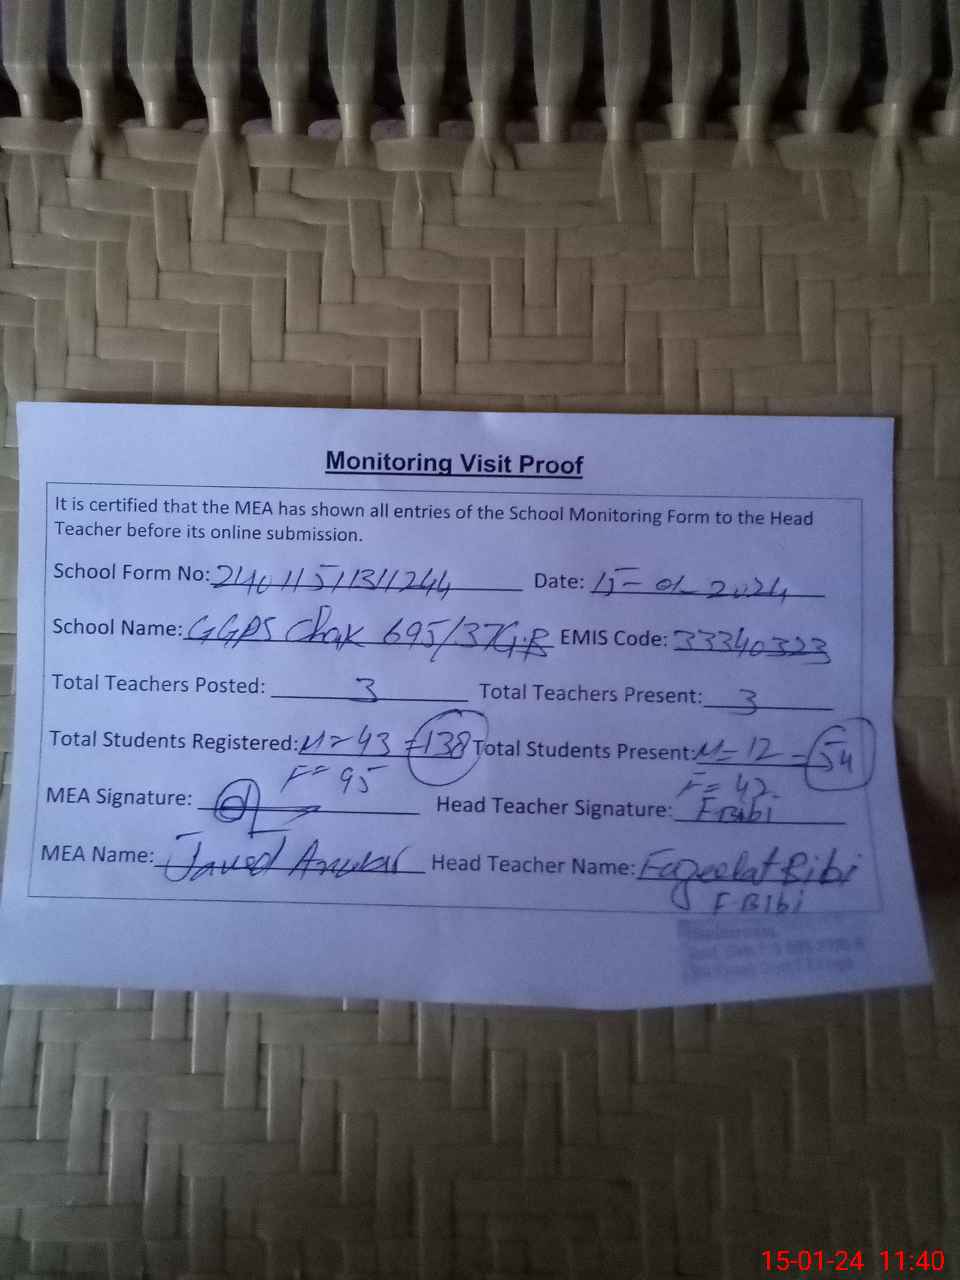 Monitoring Visit Proof
It is certified that the MEA has shown all entries of the School Monitoring Form to the Head
Teacher before its online submission.
School Form No: 2401151311244 Date: 15-01-2024
School Name: GGPS Chak 695/37G.B EMIS Code: 33340323
Total Teachers Posted: 3 Total Teachers Present: 3
Total Students Registered: M=43 =138 Total Students Present: M=12 =54
F=95 F=42
MEA Signature: Head Teacher Signature: F Bibi
MEA Name: Javed Head Teacher Name: Fazeelat Bibi
F-BIbi
15-01-24 11:40